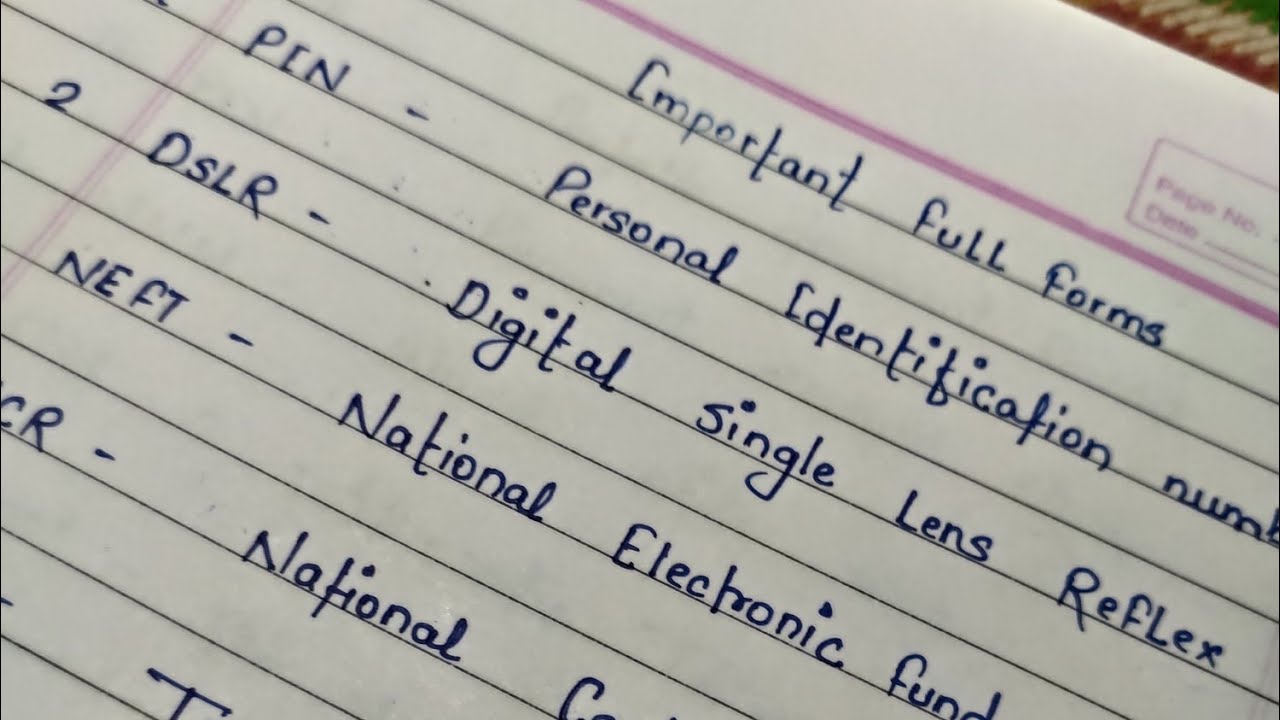 Page No.
Date
Important full forms
PIN - Personal Identification
2 DSLR - Digital Single Lens Reflex
NEFT - National Electronic fund
CR - National